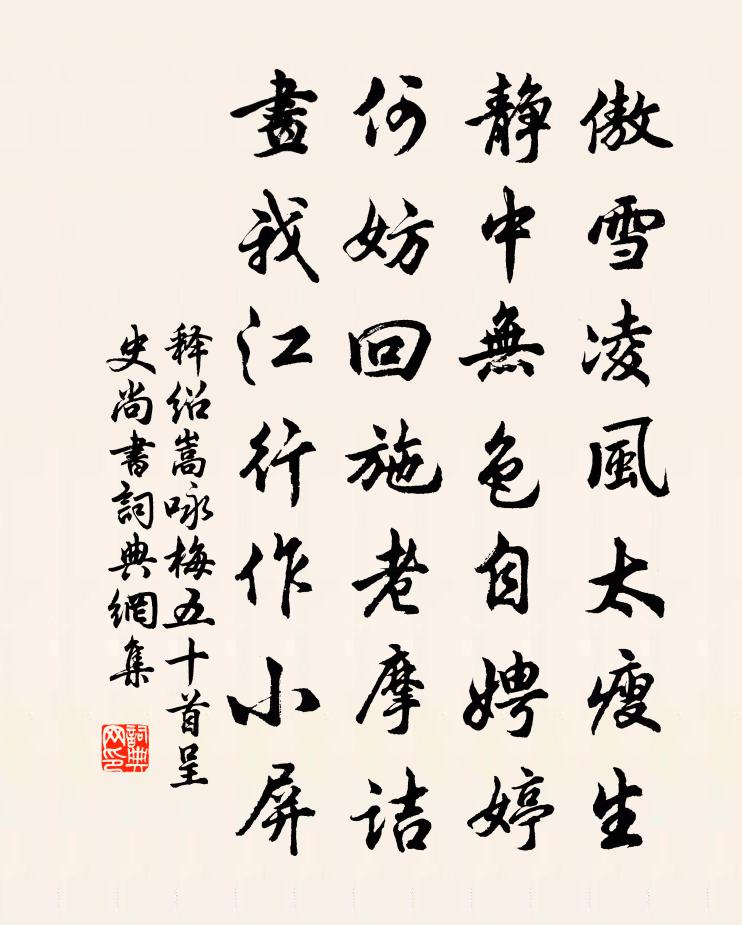 傲雪凌風太瘦生
靜中無色自娉婷
何妨回施老摩詰
畫我江行作小屏
释绍嵩咏梅五十首呈
史尚書詞典網集
詞典
网印